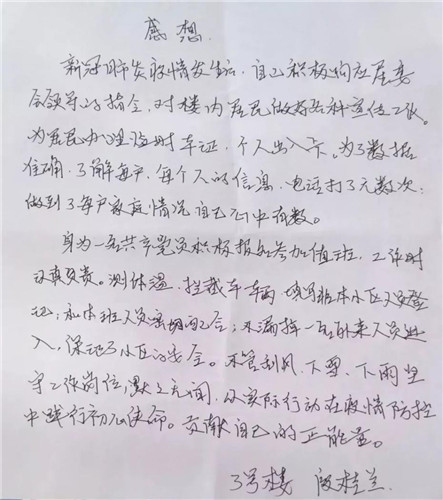 感想.
新冠肺炎疫情发生后,自己积极响应居委
会领导的指令,对楼内居民做好各种宣传工作。
为居民办理临时车证,个人出入卡。为了数据
准确,了解每户,每个人的信息,电话打了无数次;
做到了每户家庭情况自己心中有数。
身为一名共产党员积极报名参加值班,工作时
认真负责。测体温,拦截车辆 填写非本小区人员登
记;和本班人员密切配合;不漏掉一名外来人员进
入,保证了小区的安全。不管刮风,下雪,下雨坚
守工作岗位默默无闻,以实际行动在疫情防控
中践行初心使命。贡献自己的正能量。
3号楼 段桂兰